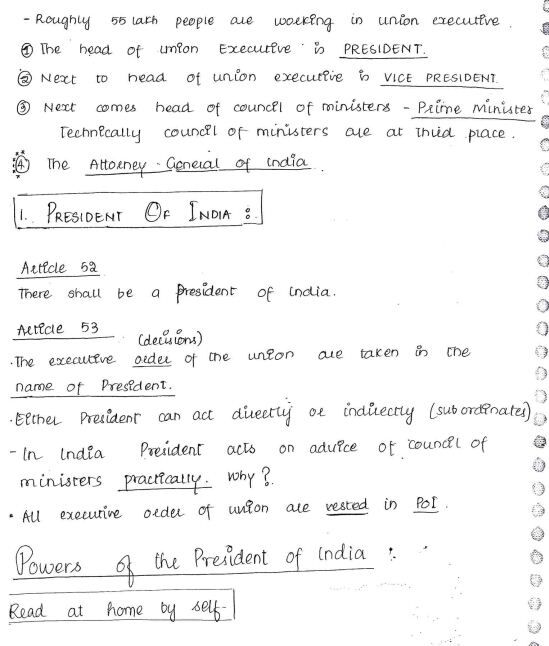 - Roughly 55 lakh people are working in union executive.
① The head of union Executive is PRESIDENT.
② Next to head of union executive is VICE PRESIDENT
③ Next comes head of council of ministers - Prime Minister
Technically council of ministers are at third place.
④ The Attorney-General of India.
1. PRESIDENT OF INDIA :
Article 52
There shall be a President of India.
Article 53
(decisions)
·The executive order of the union are taken in the
name of President.
·Either President can act directly or indirectly (subordinates)
- In India President acts on advice of council of
ministers practically. Why?
• All executive order of union are vested in POI.
Powers of the President of India :
Read at home by self-